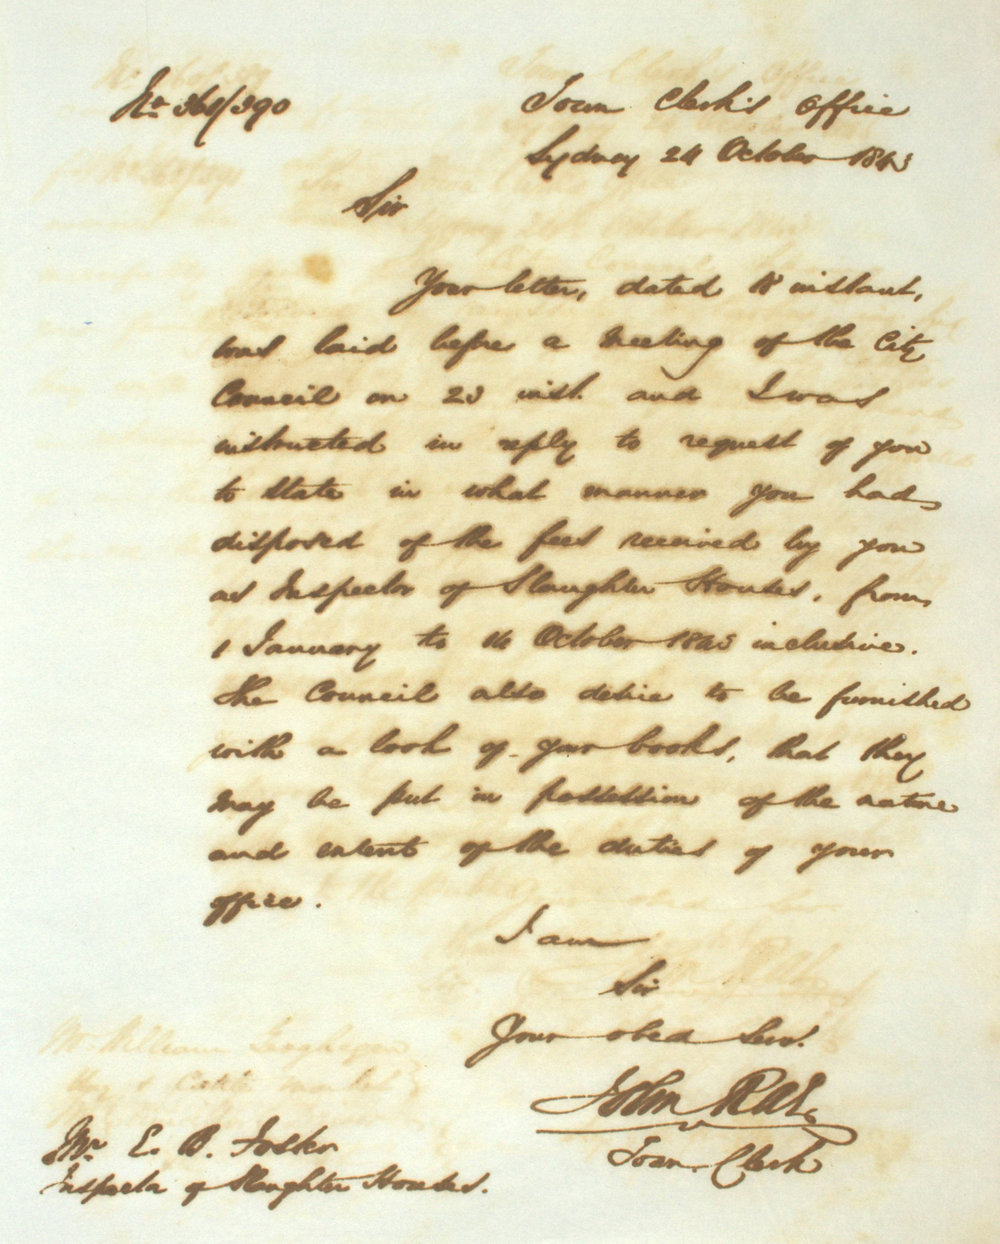 No 361/390
Town Clerk's Office
Sydney 24 October 1843
Sir
Your letter, dated 18 instant,
was laid before a Meeting of the City
Council on 23 inst. and I was
instructed in reply to request of you
to state in what manner you had
disposed of the fees received by you
as Inspector of Slaughter Houses, from
1 January to 14 October 1843 inclusive.
The Council also desire to be furnished
with a look of your books, that they
may be put in possession of the nature
and extent of the duties of your
office.
I am
Sir
Your obed Serv.
John Rae
Town Clerk
Mr E. B. Foster
Inspector of Slaughter Houses.